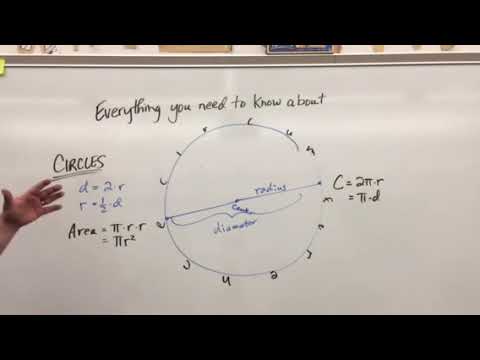 Everything you need to know about
CIRCLES
d = 2·r
r = ½·d
Area = π·r·r
= πr²
radius
diameter
C = 2π·r
= π·d